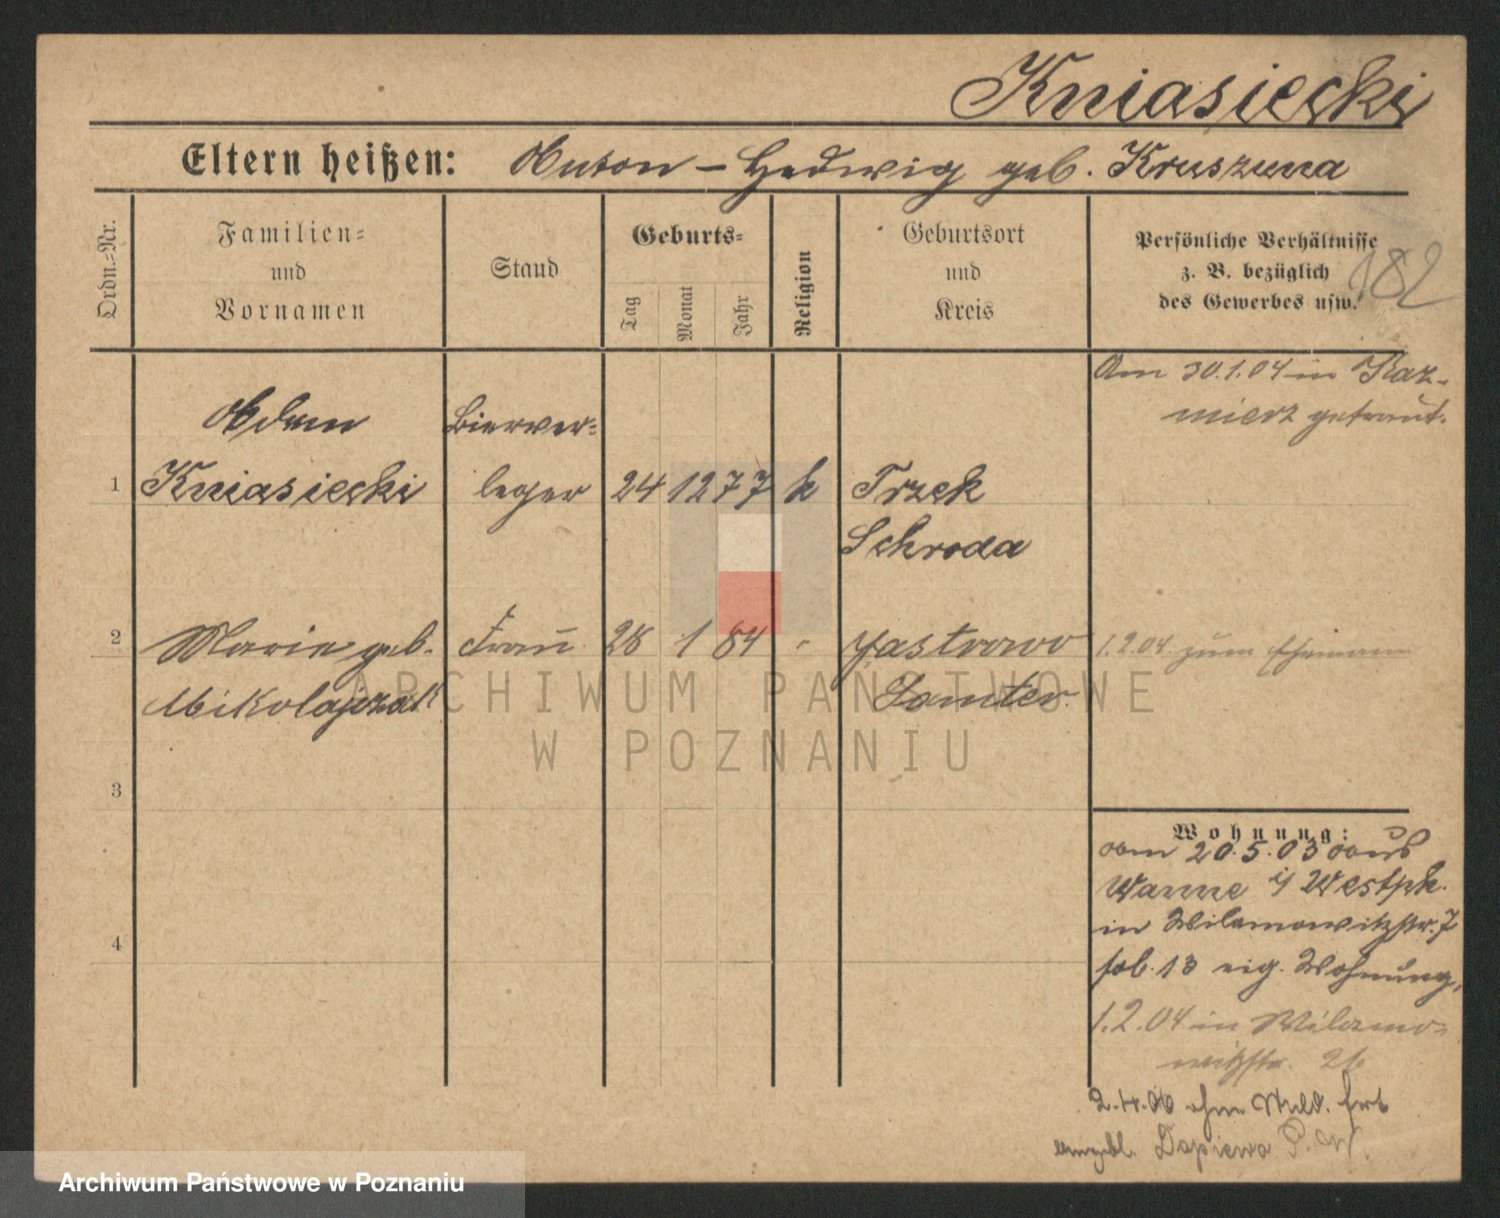 Kniasiecki
Eltern heißen: Anton – Hedwig geb. Kruszuna
Ordn.-Nr.
Familien- und Vornamen
Stand
Geburts-
Tag
Monat
Jahr
Religion
Geburtsort und Kreis
Persönliche Verhältnisse
z. B. bezüglich
des Gewerbes usw.
182
Am 30.1.04 in Kaz-
mierz getraut.
Adam Bierver-
1 Kniasiecki leger 24 12 77 k Trzek
Schroda
2 Marie geb. Frau 28 1 84 " Jastrowo 1.2.04. zum Ehemann
Mikolajczak Samter
3
Wohnung:
vom 20.5.03 aus
Wanne i/ Westph.
in Wilamowitzstr. 7
4
sob. 13 eig. Wohnung,
1.2.04 in Wilamo-
witzstr. 26
2.4.06 ohne Meld. fort
angebl. Dopiewo P. W.
ARCHIWUM PAŃSTWOWE
W POZNANIU
Archiwum Państwowe w Poznaniu